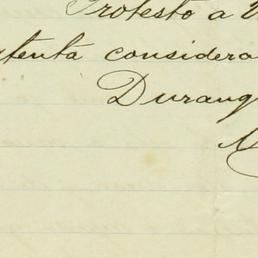 Protesto a
atenta considera
Durang